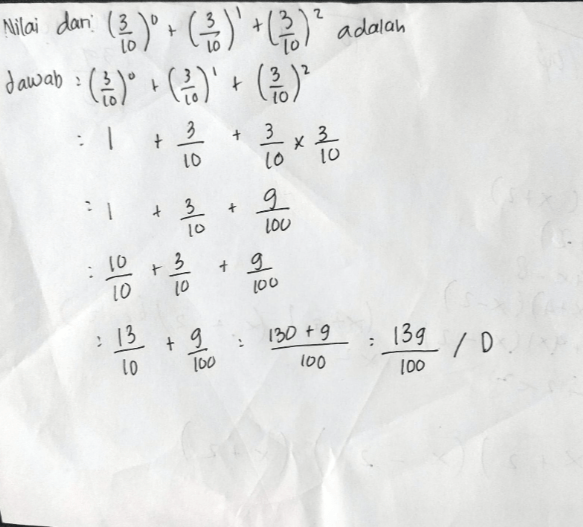 Nilai dari (3/10)⁰ + (3/10)¹ + (3/10)² adalah
Jawab : (3/10)⁰ + (3/10)¹ + (3/10)²
: 1 + 3/10 + 3/10 × 3/10
: 1 + 3/10 + 9/100
: 10/10 + 3/10 + 9/100
: 13/10 + 9/100 : 130 + 9/100 : 139/100 / D